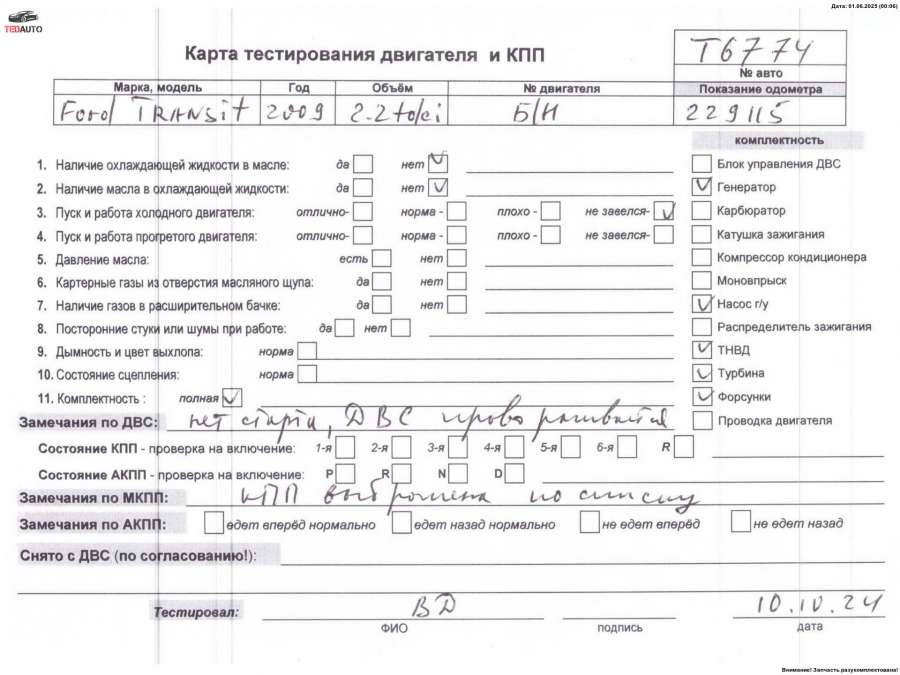 Дата: 01.06.2025 (00:06)
TEDAUTO
Карта тестирования двигателя и КПП
T6774
№ авто
Марка, модель Год Объём № двигателя Показание одометра
Ford TRANSit 2009 2.2 tdci Б/Н 229115
комплектность
1. Наличие охлаждающей жидкости в масле: да нет
Блок управления ДВС
2. Наличие масла в охлаждающей жидкости: да нет
Генератор
3. Пуск и работа холодного двигателя: отлично- норма - плохо - не завелся-
Карбюратор
4. Пуск и работа прогретого двигателя: отлично- норма - плохо - не завелся-
Катушка зажигания
5. Давление масла: есть нет
Компрессор кондиционера
6. Картерные газы из отверстия масляного щупа: да нет
Моновпрыск
7. Наличие газов в расширительном бачке: да нет
Насос г/у
8. Посторонние стуки или шумы при работе: да нет
Распределитель зажигания
9. Дымность и цвет выхлопа: норма
ТНВД
10. Состояние сцепления: норма
Турбина
11. Комплектность : полная
Форсунки
Замечания по ДВС: нет старта, ДВС проворачивается
Проводка двигателя
Состояние КПП - проверка на включение: 1-я 2-я 3-я 4-я 5-я 6-я R
Состояние АКПП - проверка на включение: P R N D
Замечания по МКПП: КПП выброшена по списку
Замечания по АКПП: едет вперёд нормально едет назад нормально не едет вперёд не едет назад
Снято с ДВС (по согласованию!):
Тестировал: ВД 10.10.24
ФИО подпись дата
Внимание! Запчасть разукомплектована!